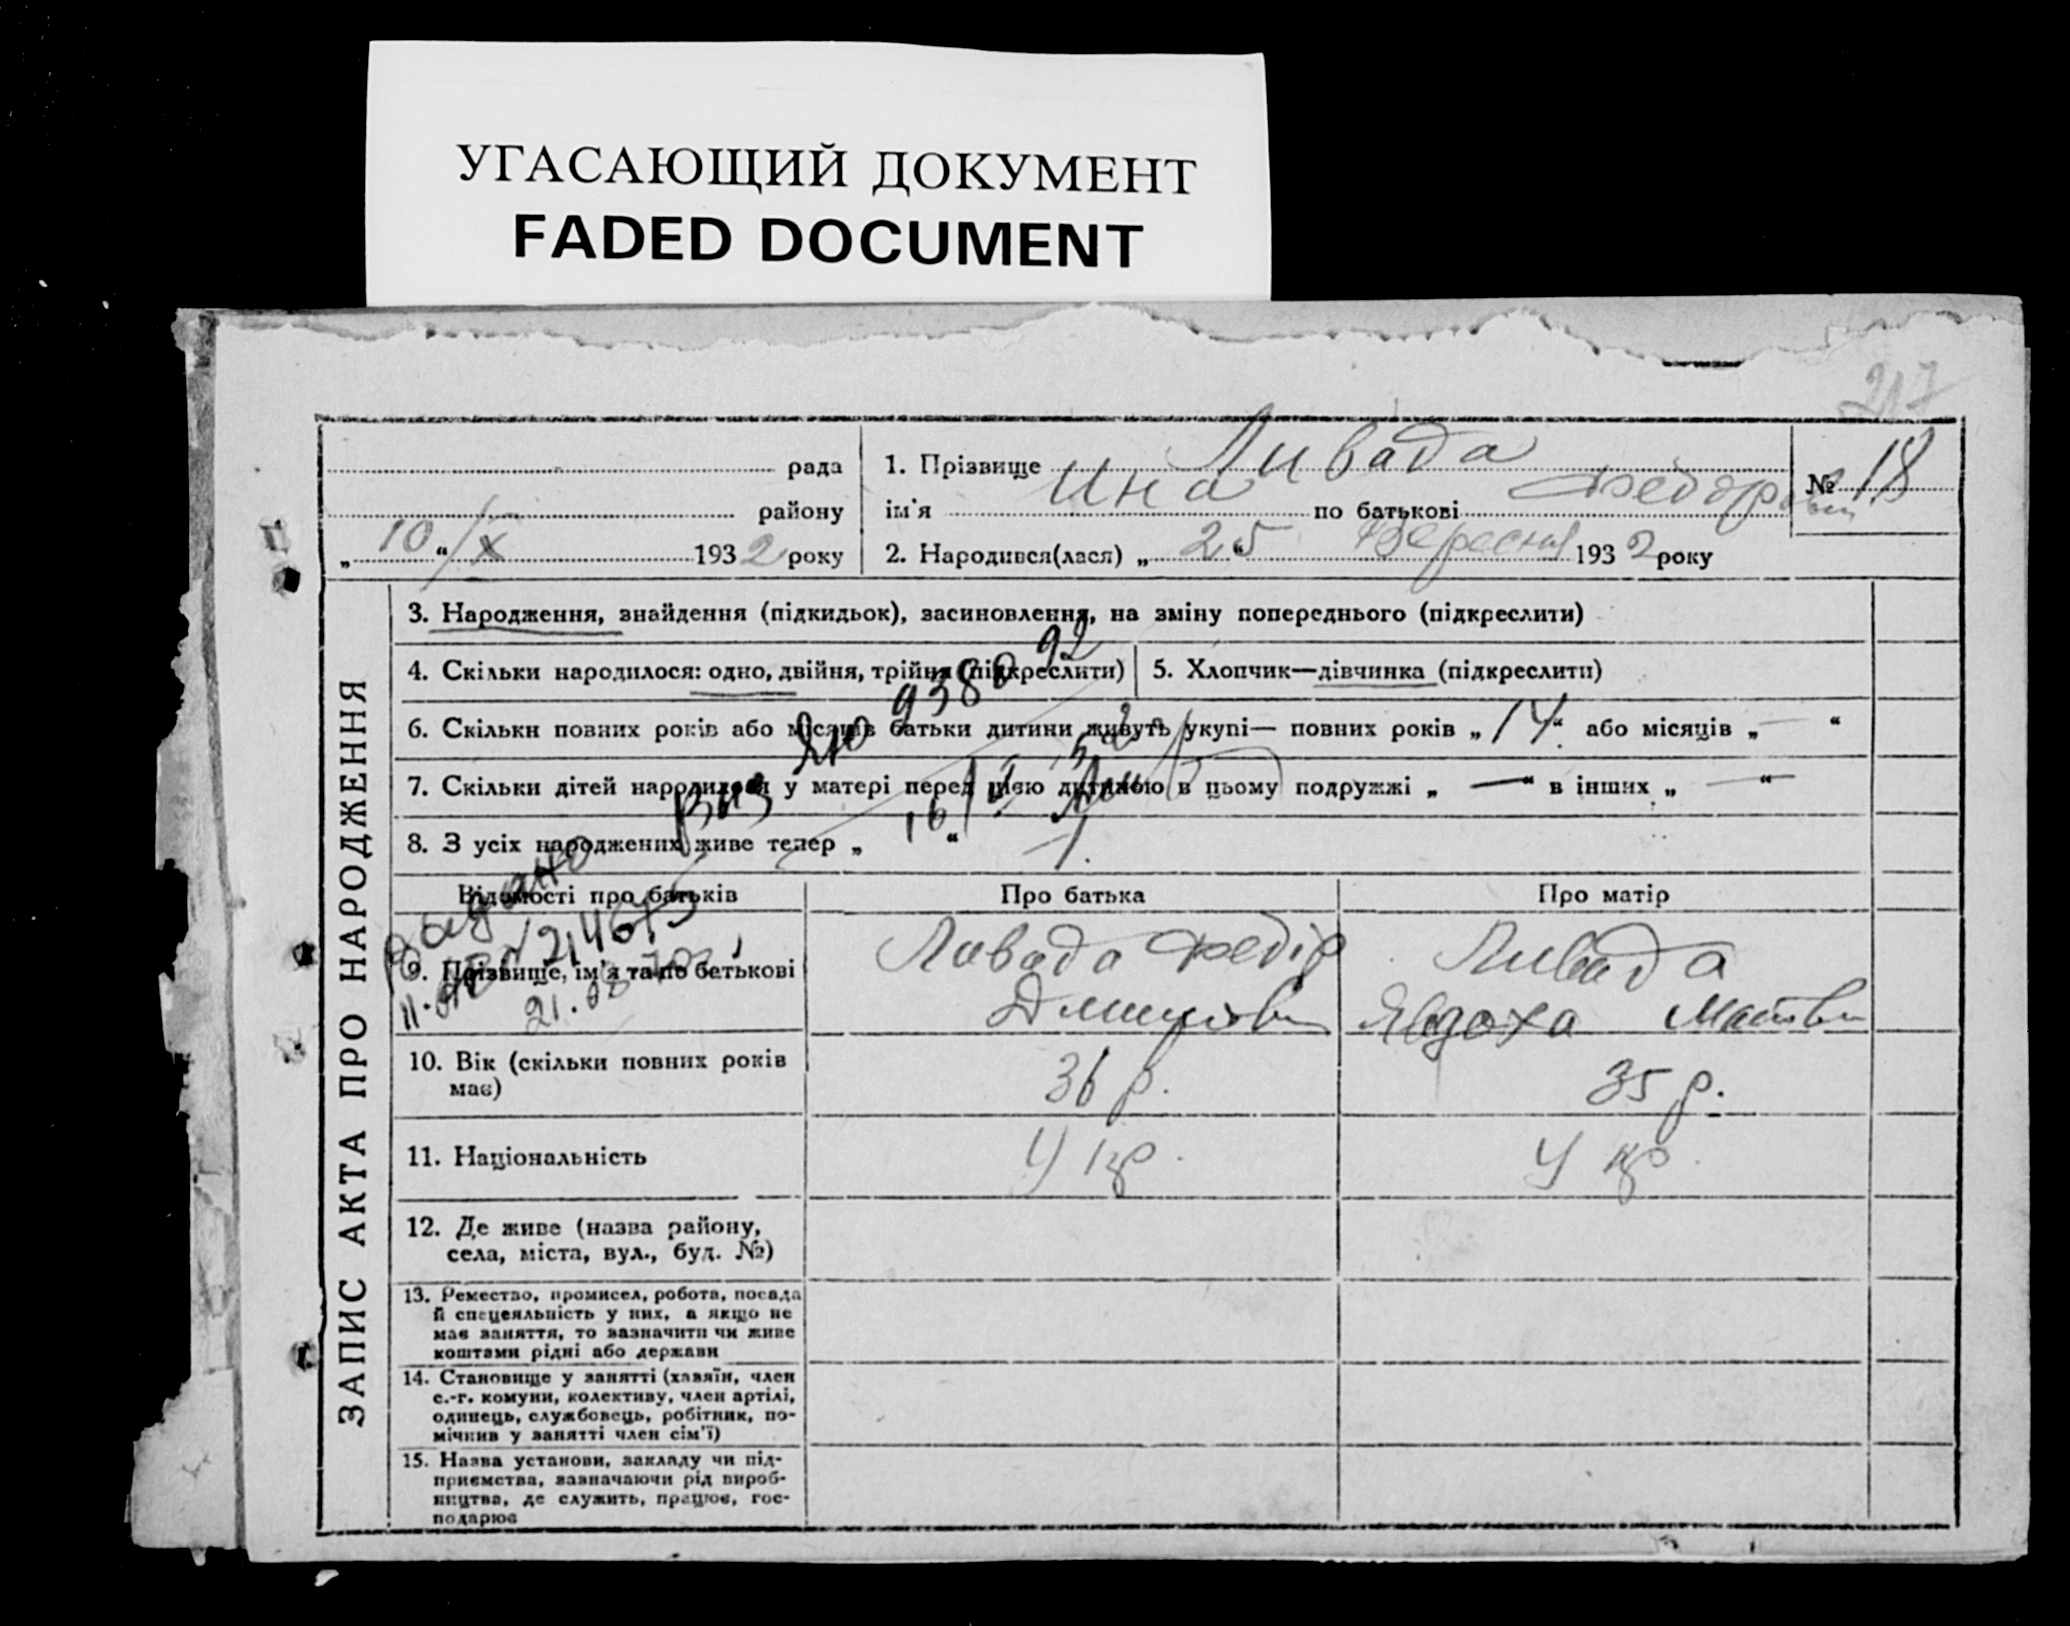 УГАСАЮЩИЙ ДОКУМЕНТ
FADED DOCUMENT
217
рада
району
„ 10 “ / X 1932 року
1. Прізвище Ливада
ім'я Ина по батькові Федоров
2. Народився(лася) „ 25 Вересня 1932 року
№ 18
ЗАПИС АКТА ПРО НАРОДЖЕННЯ
3. Народження, знайдення (підкидьок), засиновлення, на зміну попереднього (підкреслити)
4. Скільки народилося: одно, двійня, трійня (підкреслити)
5. Хлопчик—дівчинка (підкреслити)
6. Скільки повних років або місяців батьки дитини живуть укупі— повних років „ 14 “ або місяців „ — “
7. Скільки дітей народилося у матері перед цією дитиною в цьому подружжі „ — “ в інших „ — “
8. З усіх народжених живе тепер „ “
Видано
21.08
Відомості про батьків
Про батька
Про матір
9. Прізвище, ім'я та по батькові
Ливада Федір
Ливада
Явдоха
10. Вік (скільки повних років
має)
36 р.
35 р.
11. Національність
Укр.
Укр.
12. Де живе (назва району,
села, міста, вул., буд. №)
13. Ремество, промисел, робота, посада
й спецеяльність у них, а якщо не
має заняття, то зазначити чи живе
коштами рідні або держави
14. Становище у занятті (хазяїн, член
с.-г. комуни, колективу, член артілі,
одинець, службовець, робітник, по-
мічнив у занятті член сім'ї)
15. Назва установи, закладу чи під-
приємства, зазначаючи рід вироб-
ництва, де служить, працює, гос-
подарює